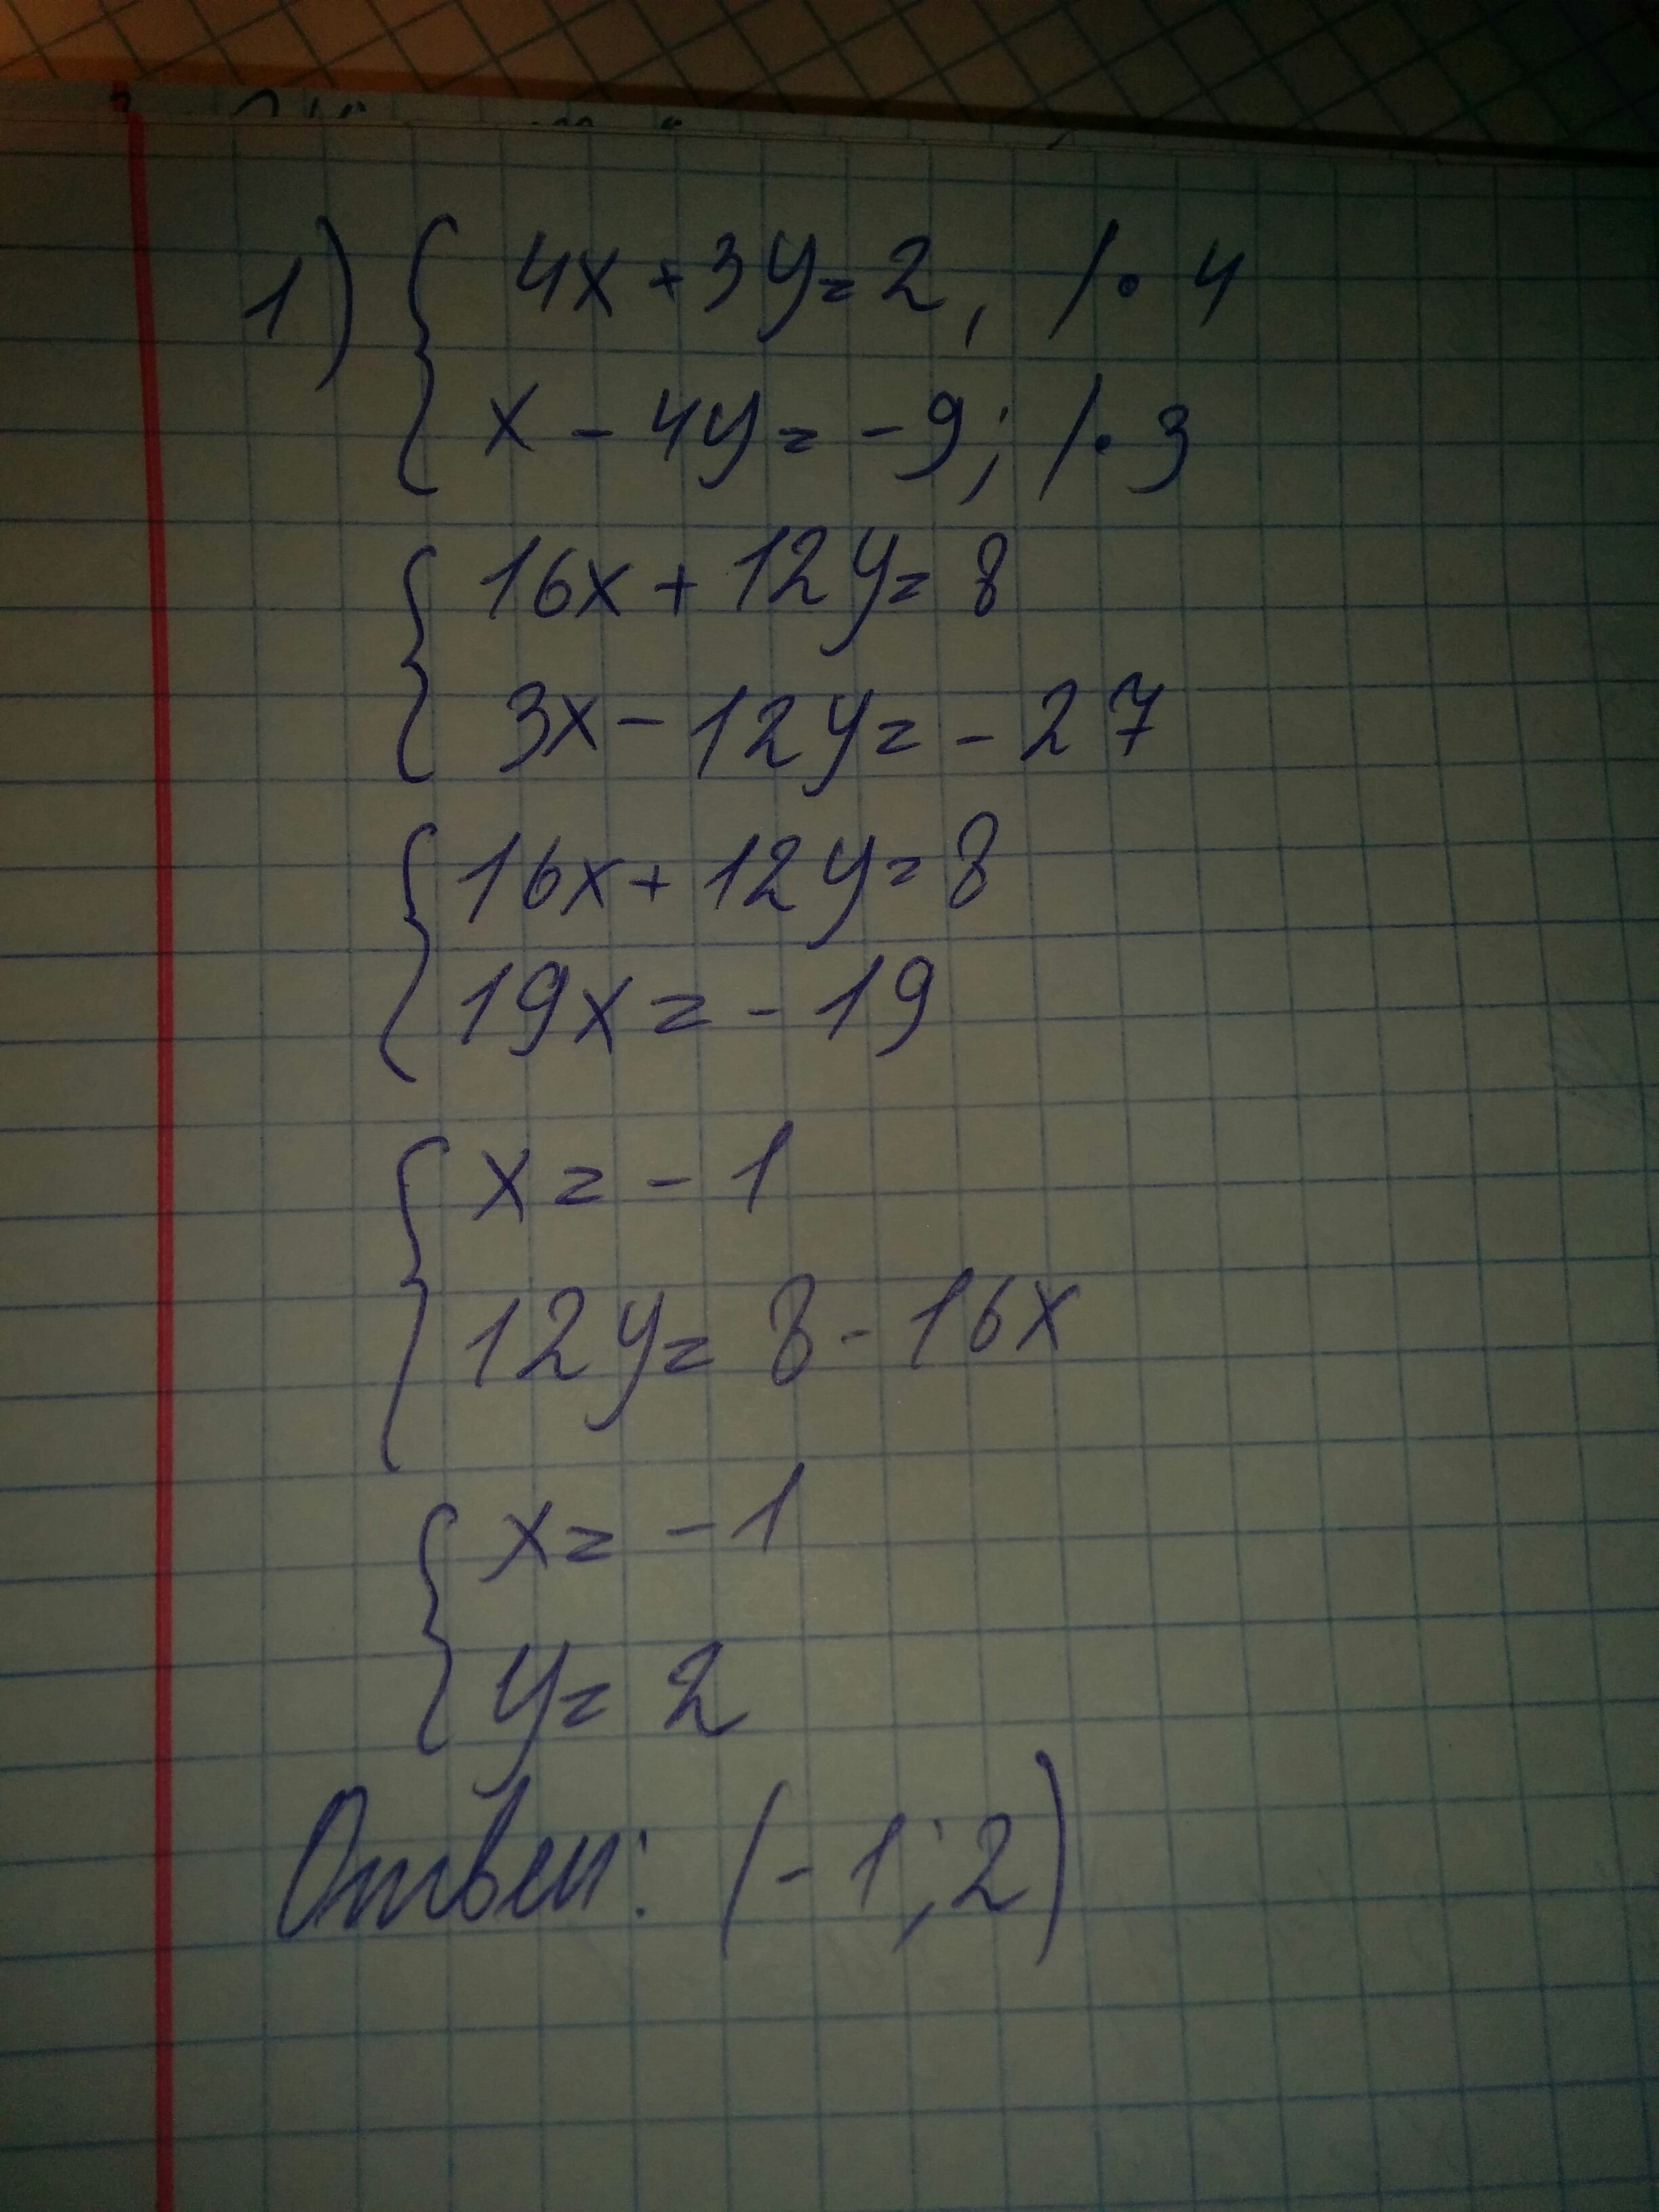 1) { 4x + 3y = 2, /· 4
x - 4y = -9; /· 3
{ 16x + 12y = 8
3x - 12y = - 27
{ 16x + 12y = 8
19x = - 19
{ x = - 1
12y = 8 - 16x
{ x = - 1
y = 2
Ответ: (- 1; 2)